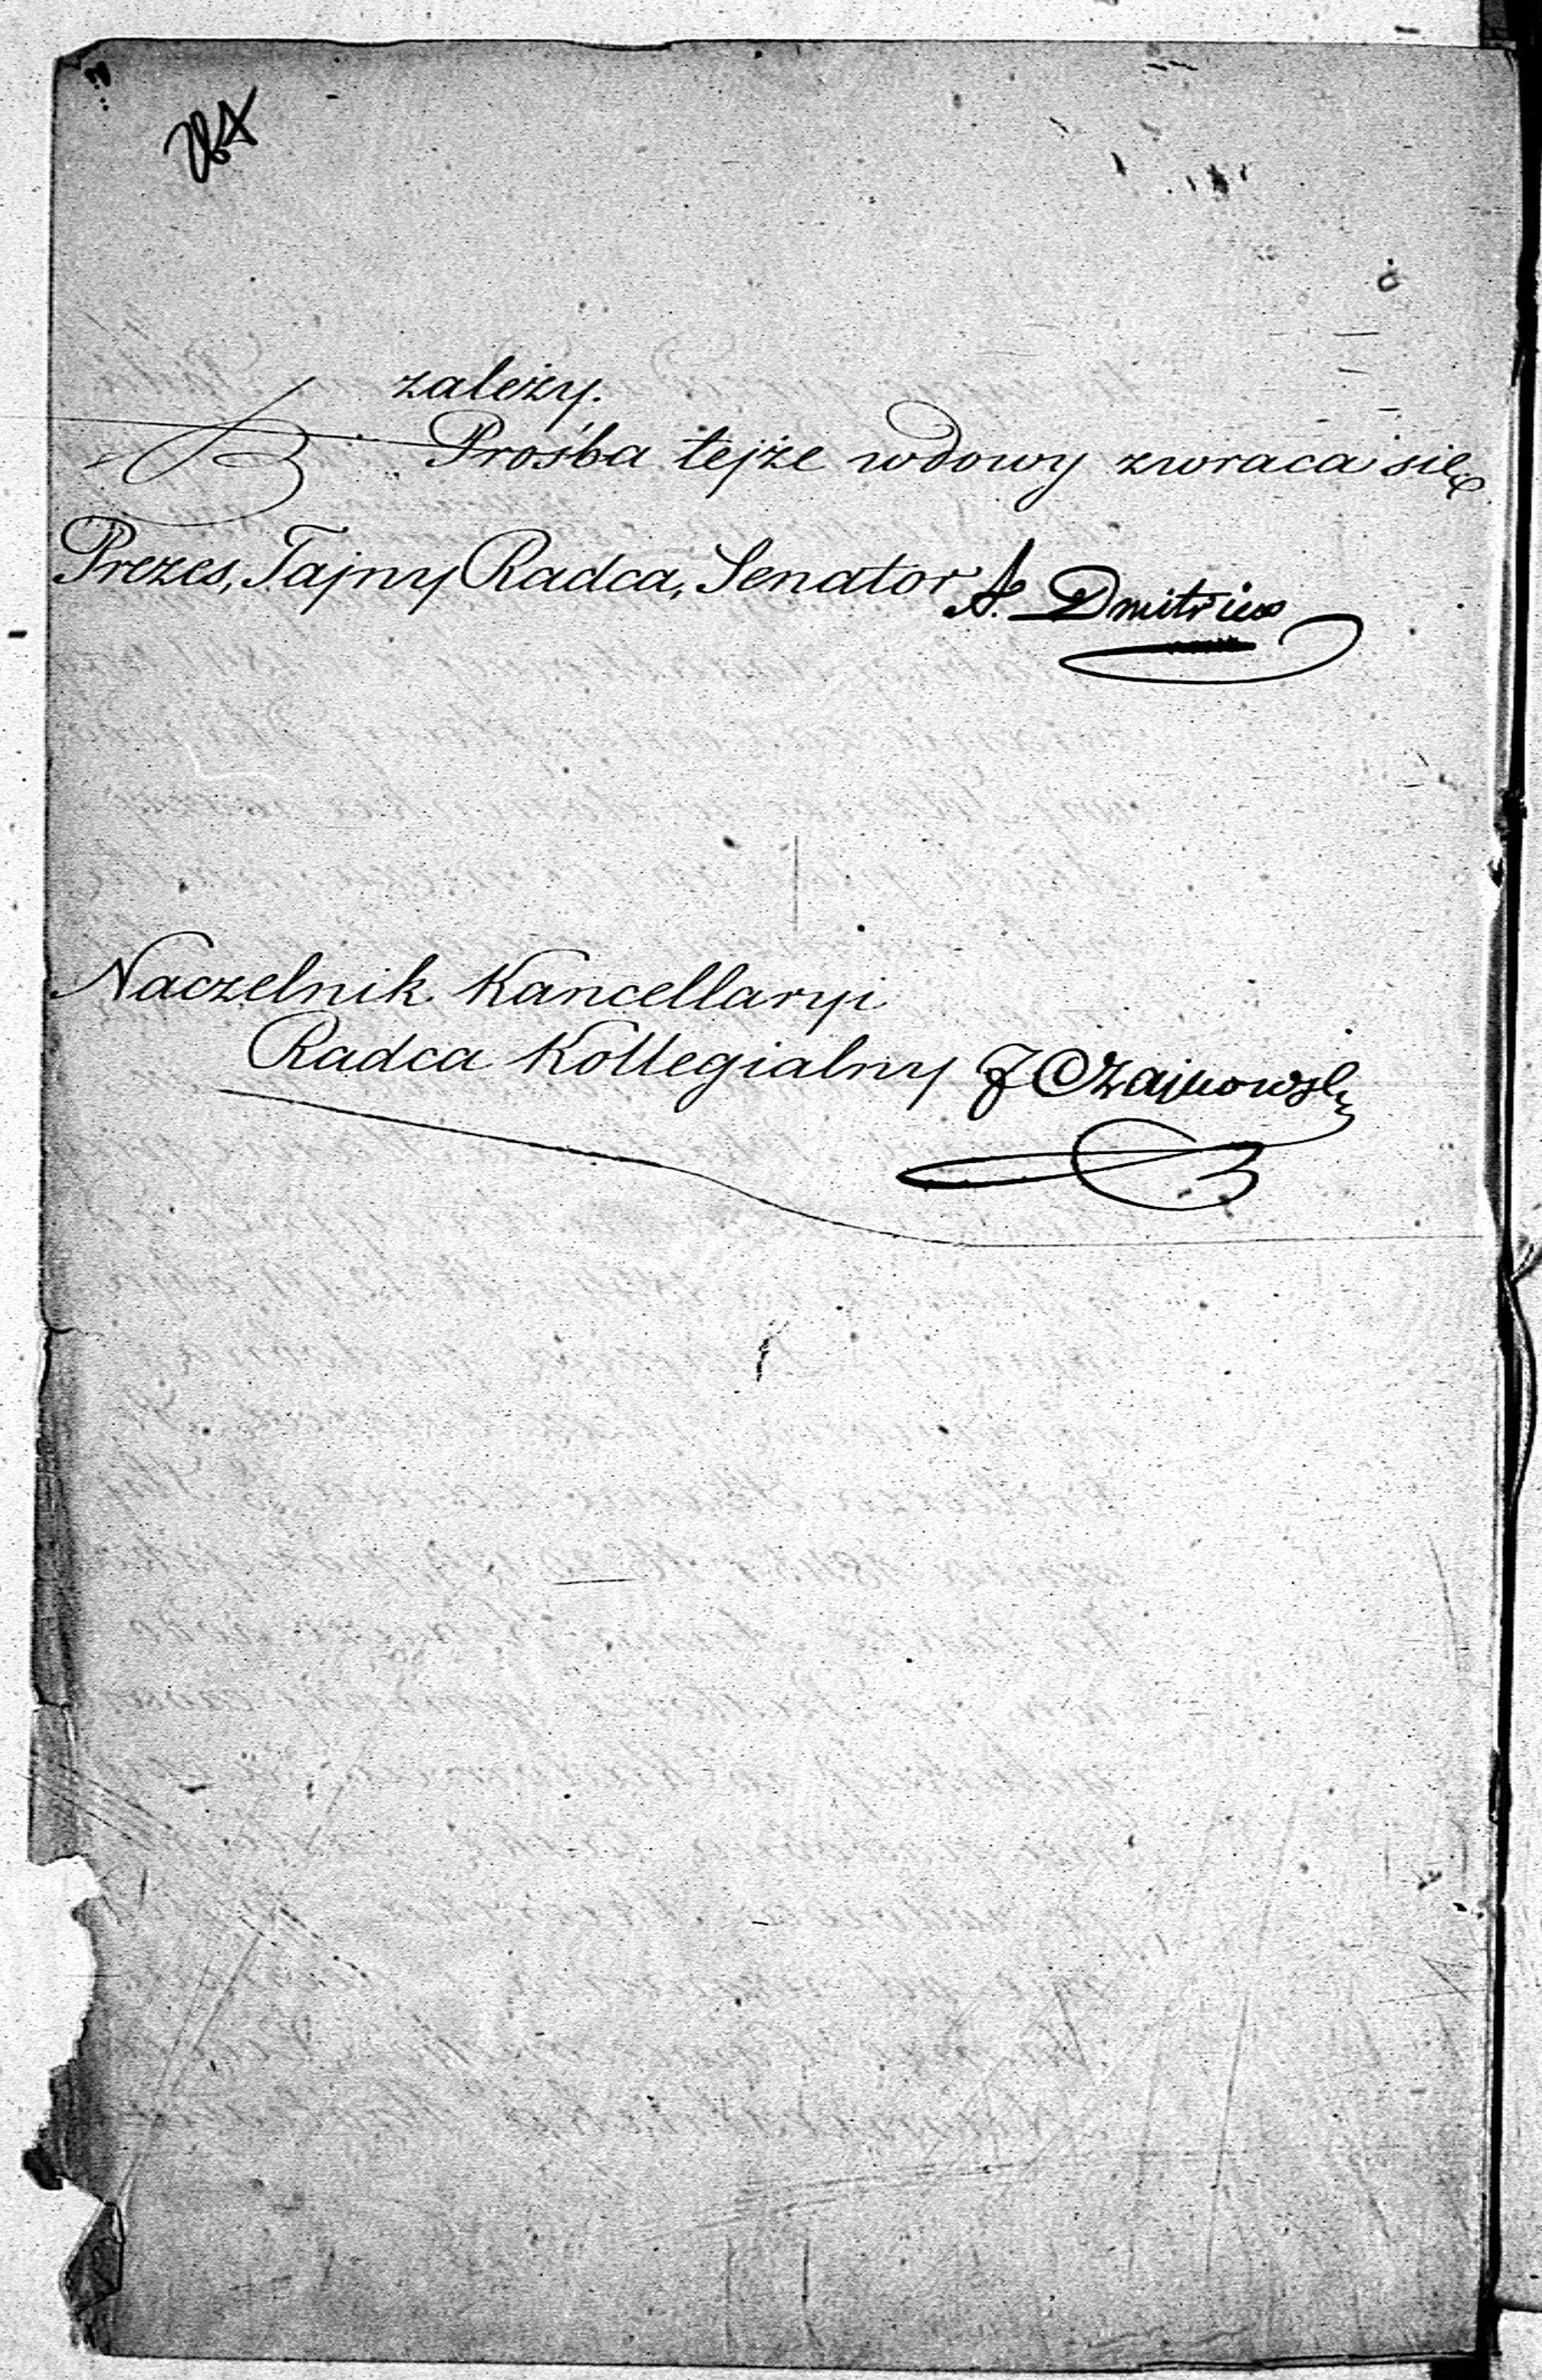 264
zależy.
Prośba tejże wdowy zwraca się
Prezes, Tajny Radca, Senator A. Dmitriew
Naczelnik Kancellaryi
Radca Kollegialny J Czajkowski